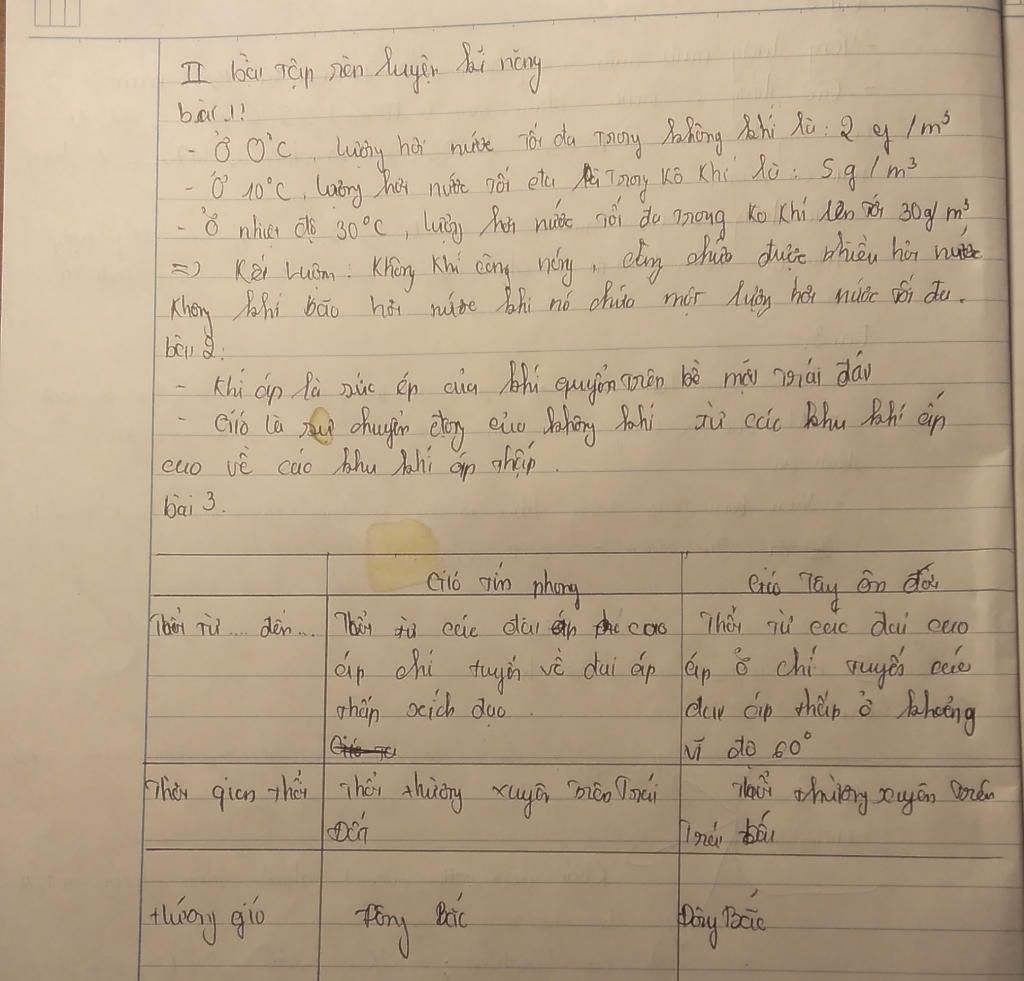 II bài tập rèn luyện kĩ năng
bài 1:
- Ở 0°C, lượng hơi nước tối đa trong không khí là: 2 g /m³
- Ở 10°C, lượng hơi nước tối đa trong Kô Khí là: 5 g / m³
- Ở nhiệt độ 30°C, lượng hơi nước tối đa trong Ko Khí lên tới 30g/ m³
=> Kết luận: Không Khí càng nóng, càng chứa được nhiều hơi nước
Không khí bão hơi nước khi nó chứa một lượng hơi nước tối đa.
bài 2:
- Khí áp là sức ép của khí quyển trên bề mặt trái đất
- Gió là sự chuyển động của không khí từ các khu khí áp
cao về các khu khí áp thấp.
bài 3.
Gió tín phong
Gió Tây ôn đới
Thổi từ .... đến...
Thổi từ các đai cao
áp chí tuyến về đai áp
thấp xích đạo.
Thổi từ các đai cao
áp ở chí tuyến các
đai áp thấp ở khoảng
vĩ độ 60°
Thời gian thổi
Thổi thường xuyên trên Trái
Đất
Thổi thường xuyên trên
Trái đất
Hướng gió
Đông Bắc
Đông Bắc